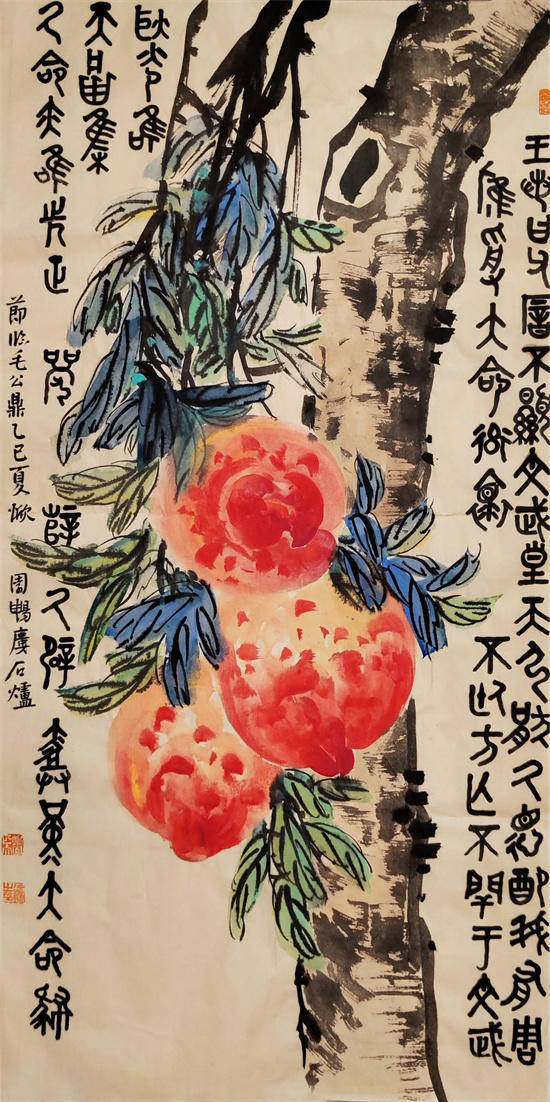 王若曰父厝不顯文武皇天弘猒氒德配我有周
雁受大命衒褱
不廷方亡不閈于文武
耿光唯
天𤖕集
氒命亦唯先正
辥氒辟 堇大命肆
節臨毛公鼎乙巳夏 周暢廔石爐